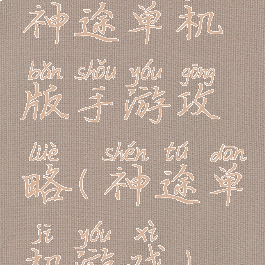 神途单机
bǎn shǒu yóu gōng
版手游攻
lüè shén tú dān
略(神途单
jī yóu xì
机游戏)